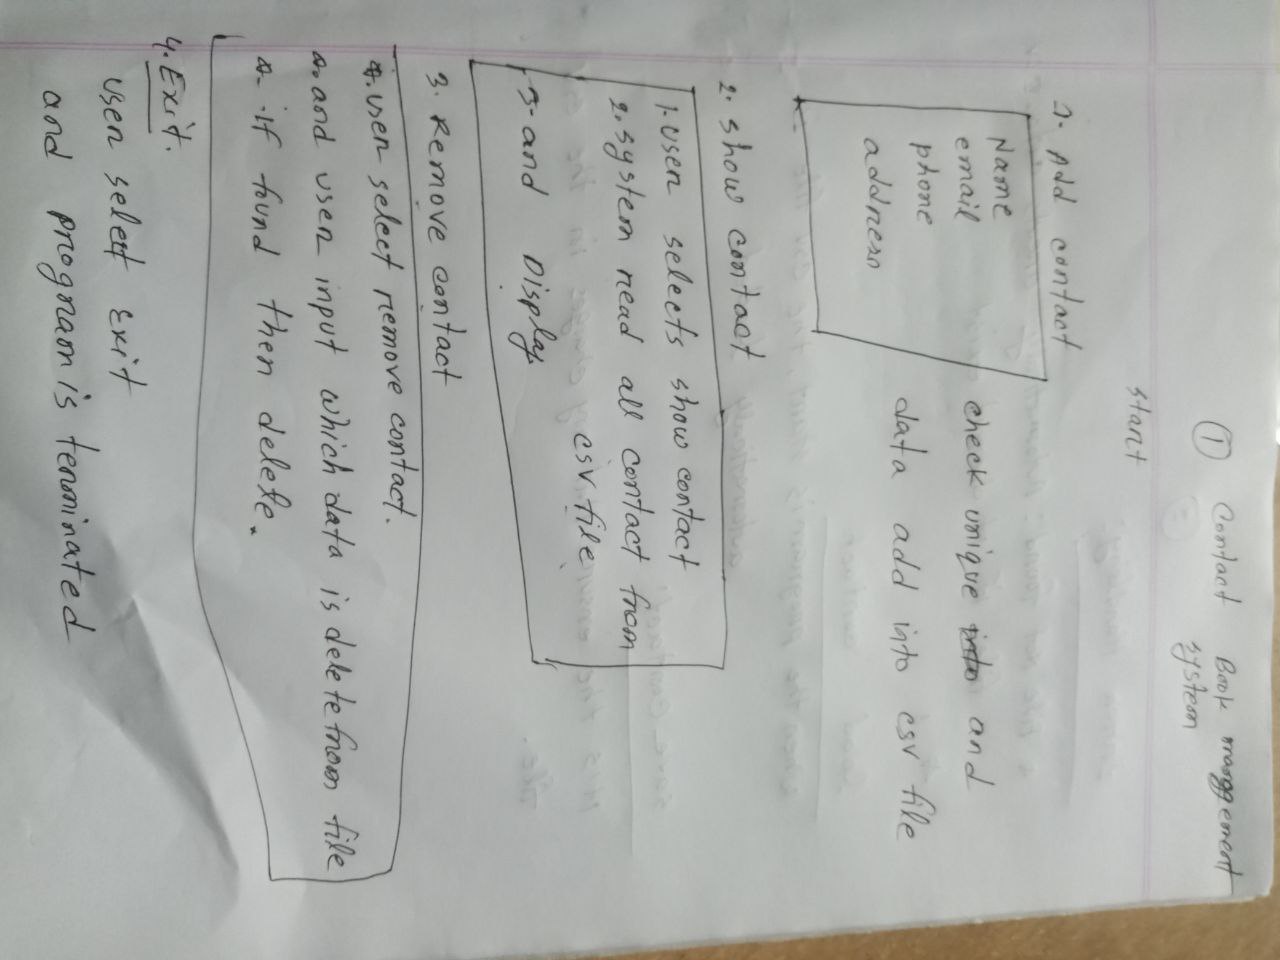 ① Contact Book management
system
start
1. Add contact
Name
email
phone
address
check unique and
data add into csv file
2. show contact
1. user selects show contact
2. system read all contact from
csv file
3. and Display
3. Remove contact
user select remove contact.
and user input which data is delete from file
if found then delete.
4. Exit.
user select Exit
and program is terminated